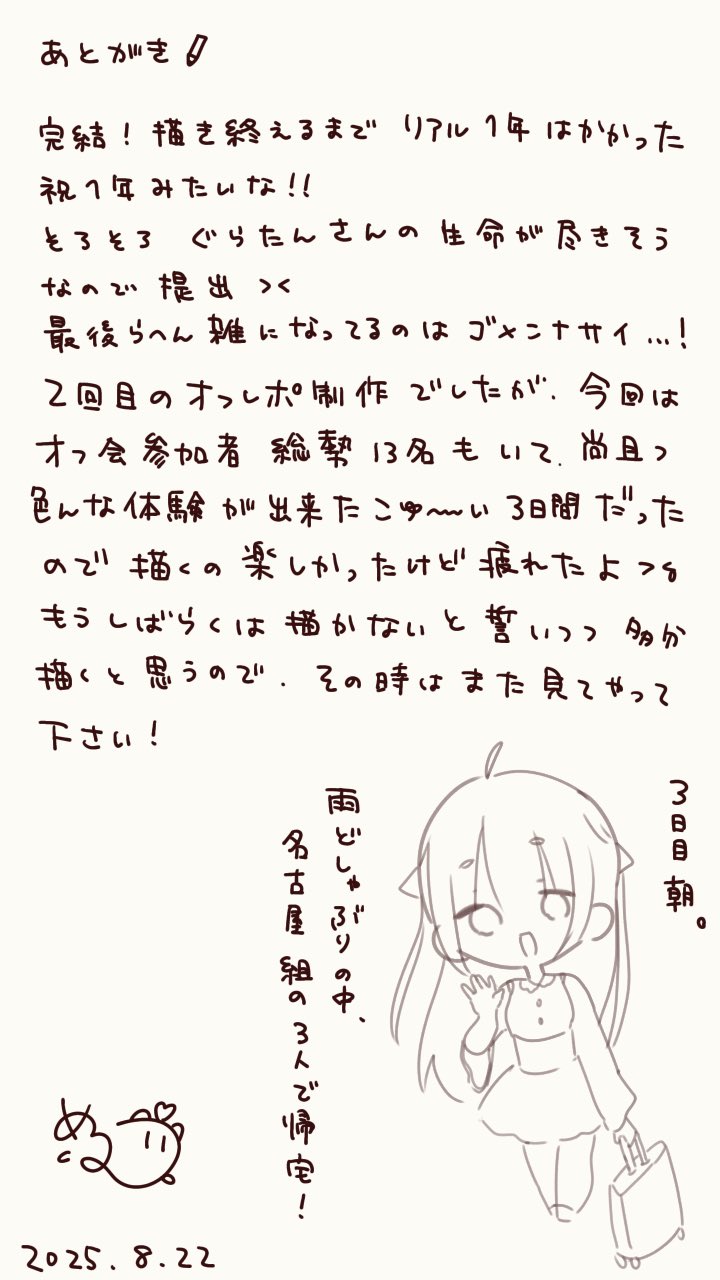 あとがき
完結！描き終えるまで リアル1年はかかった
祝1年みたいな!!
そろそろ ぐらたんさんの生命が尽きそう
なので提出 ><
最後らへん雑になってるのはゴメンナサイ…!
2回目のオフレポ制作でしたが、今回は
オフ会参加者 総勢13名もいて、尚且つ
色んな体験が出来たこゆ〜い3日間だった
ので描くの楽しかったけど疲れたよ
もうしばらくは描かないと誓いつつ多分
描くと思うので、その時はまた見てやって
下さい！
3日目 朝。
雨どしゃぶりの中、
名古屋組の3人で帰宅！
2025.8.22